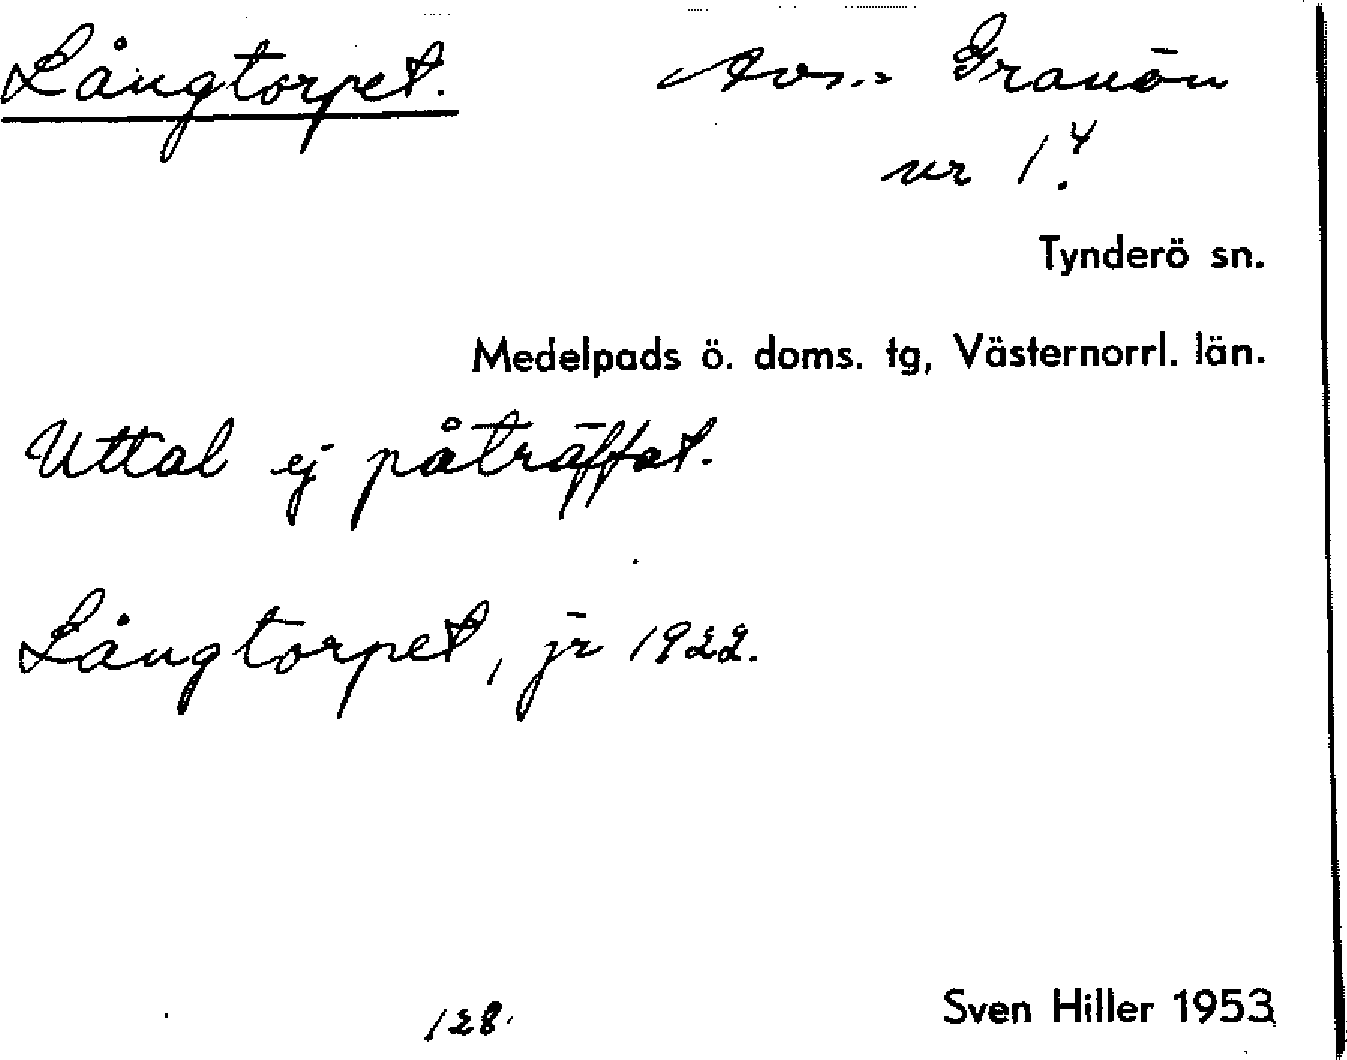 Långtorpet. Avs.: Granön
nr 1⁴.
Tynderö sn.
Medelpads ö. doms. tg, Västernorrl. län.
Uttal ej påträffat.
Långtorpet, jr 1922.
128.
Sven Hiller 1953